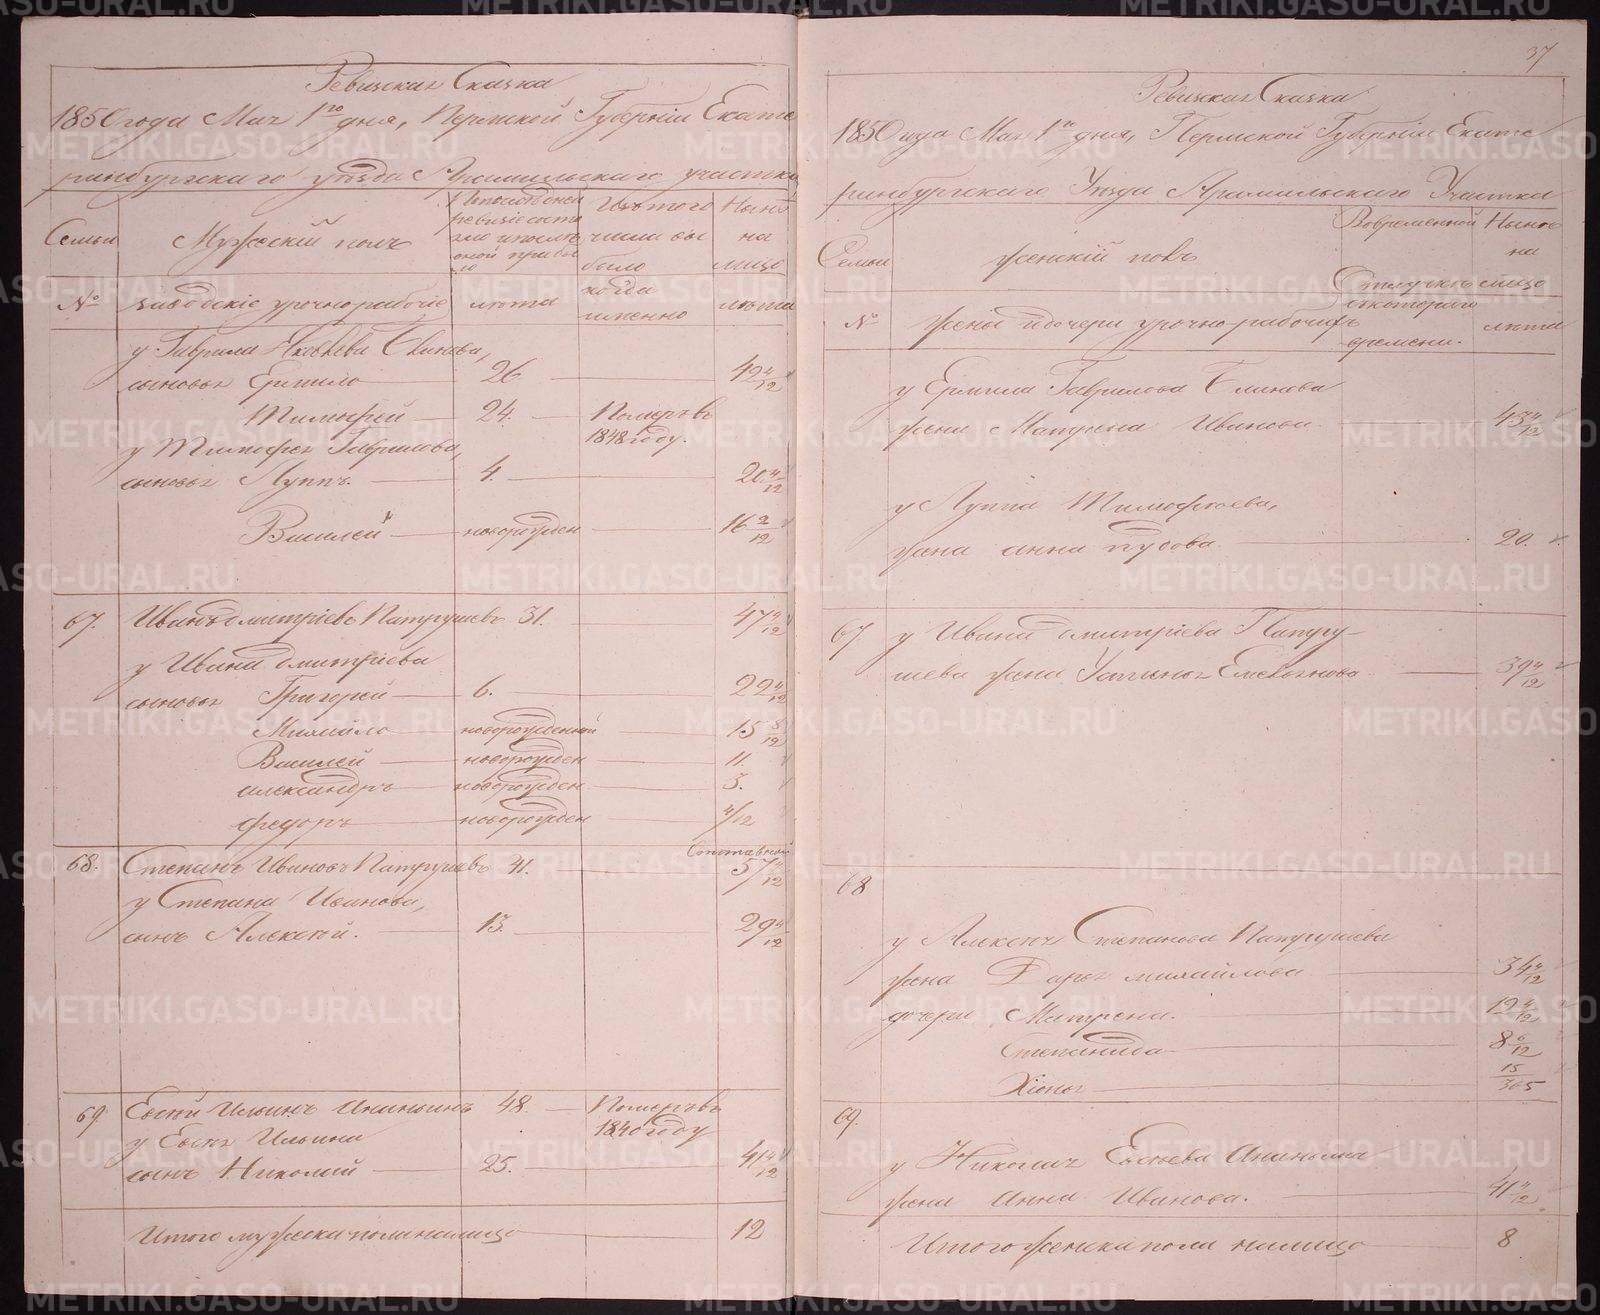 Ревизская Сказка
1850 года Мая 1го дня, Пермской Губернiи Екате
ринбургскаго уѣзда Арамильскаго участка
Семьи
Мужескiй полъ
По последней
ревизiи состо
яло и послѣ
оной прибы
ло
Изъ того
числа вы
было
Нынѣ
на
лицо
№
заводскiе урочно рабочiе
лѣта
когда
именно
лѣта
у Гаврила Яковлева Блинова,
сыновья Ермило 26. 42 4/12
Тимофей 24. Померъ въ
1848 году.
у Тимофея Гаврилова,
сыновья Луппъ. 4. 20 4/12
Василей новорожден 16 2/12
67. Иванъ Дмитрiевъ Патрушевъ 31. 47 4/12
у Ивана Дмитрiева
сыновья Григорей 6. 22 4/12
Михайло новорожденной 15 8/12
Василей новорожден 11.
Александръ новорожден 3.
Федоръ новорожден 4/12
68. Степанъ Ивановъ Патрушевъ 41. 57 4/12
у Степана Иванова,
сынъ Алексѣй. 13. 29 4/12
69. Евсѣй Ильинъ Ананьинъ 48. Померъ въ
1840 году
у Евсѣя Ильина
сынъ Николай 25. 41 4/12
Итого мужеска пола налицо 12
37
Ревизская Сказка
1850 года Мая 1го дня, Пермской Губернiи Екате
ринбургскаго Уѣзда Арамильскаго Участка
Семьи
женскiй полъ
Во временной
Отлучкѣ
Нынѣ
на
лицо
№
жены и дочери урочно рабочихъ
съ котораго
времени.
лѣта
у Ермила Гаврилова Блинова
жена Матрена Иванова 43 4/12
у Луппа Тимофѣева,
жена Анна 20.
67. у Ивана Дмитрiева Патру-
шева жена Улiянья Емельянова 39 4/12
68
у Алексѣя Степанова Патрушева
жена Дарья Михайлова 34 4/12
дочери Матрена. 12 4/12
Степанида 8 6/12
Хiонья 15/365
69.
у Николая Евсѣева Ананьина
жена Анна Иванова. 41 4/12
Итого женска пола налицо 8
METRIKI.GASO-URAL.RU